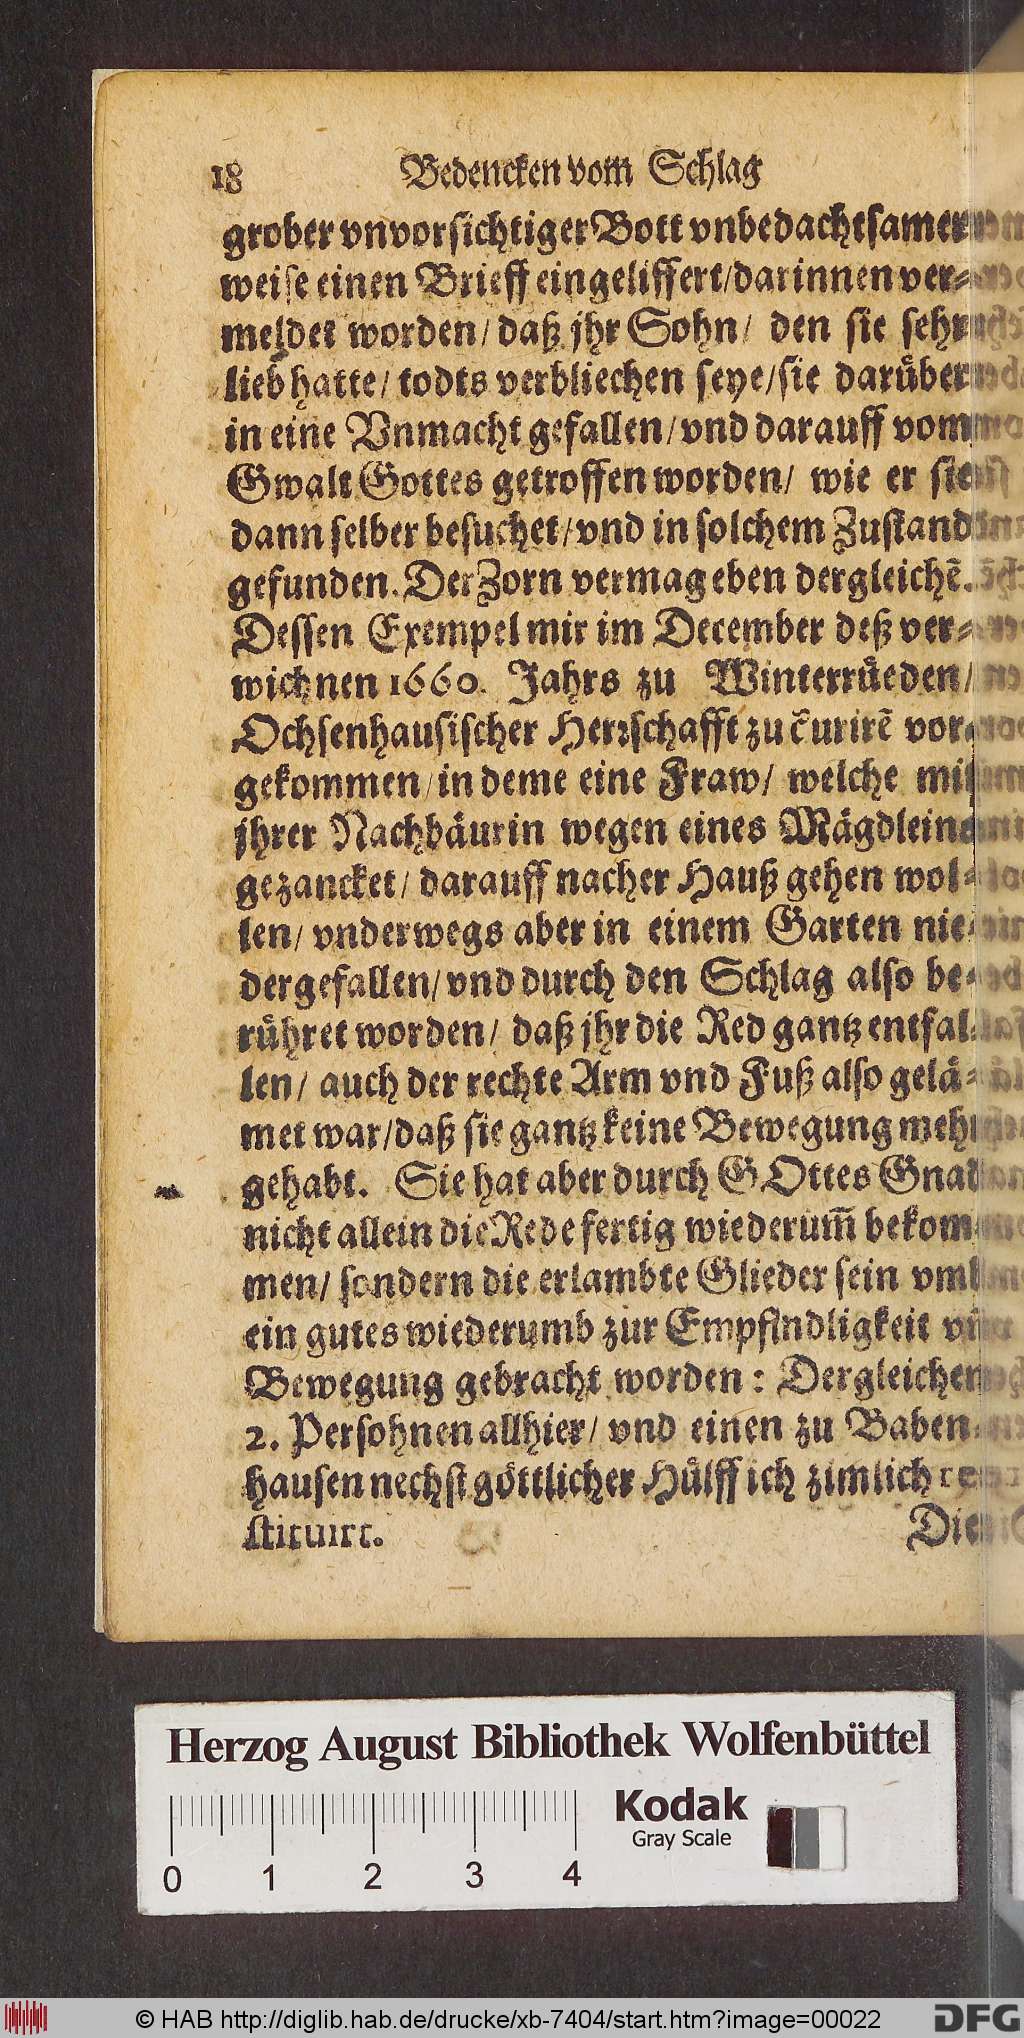 18 Bedencken vom Schlag
grober vnvorsichtiger Bott vnbedachtsamer
weise einen Brieff eingeliffert/darinnen ver-
meldet worden/ daß jhr Sohn/ den sie sehr
lieb hatte/ todts verbliechen seye/sie darüber
in eine Vnmacht gefallen/vnd darauff vom
Gwalt Gottes getroffen worden/ wie er sie
dann selber besuchet/vnd in solchem Zustand
gefunden. Der Zorn vermag eben dergleichē.
Dessen Exempel mir im December deß ver-
wichnen 1660. Jahrs zu Winterrüeden/
Ochsenhausischer Herrschafft zu curirē vor-
gekommen/in deme eine Fraw/ welche mit
jhrer Nachbäurin wegen eines Mägdleins
gezancket/ darauff nacher Hauß gehen wol-
len/ vnderwegs aber in einem Garten nie-
dergefallen/vnd durch den Schlag also be-
rühret worden/ daß jhr die Red gantz entfal-
len/ auch der rechte Arm vnd Fuß also gelä-
met war/daß sie gantz keine Bewegung mehr
gehabt. Sie hat aber durch GOttes Gnad
nicht allein die Rede fertig wiederum̄ bekom-
men/ sondern die erlambte Glieder sein vmb
ein gutes wiederumb zur Empfindligkeit vn̄
Bewegung gebracht worden: Dergleichen
2. Persohnen allhier/ vnd einen zu Baben-
hausen nechst göttlicher Hülff ich zimlich re-
stituirt.
Die
Herzog August Bibliothek Wolfenbüttel
Kodak
Gray Scale
0 1 2 3 4
© HAB http://diglib.hab.de/drucke/xb-7404/start.htm?image=00022
DFG